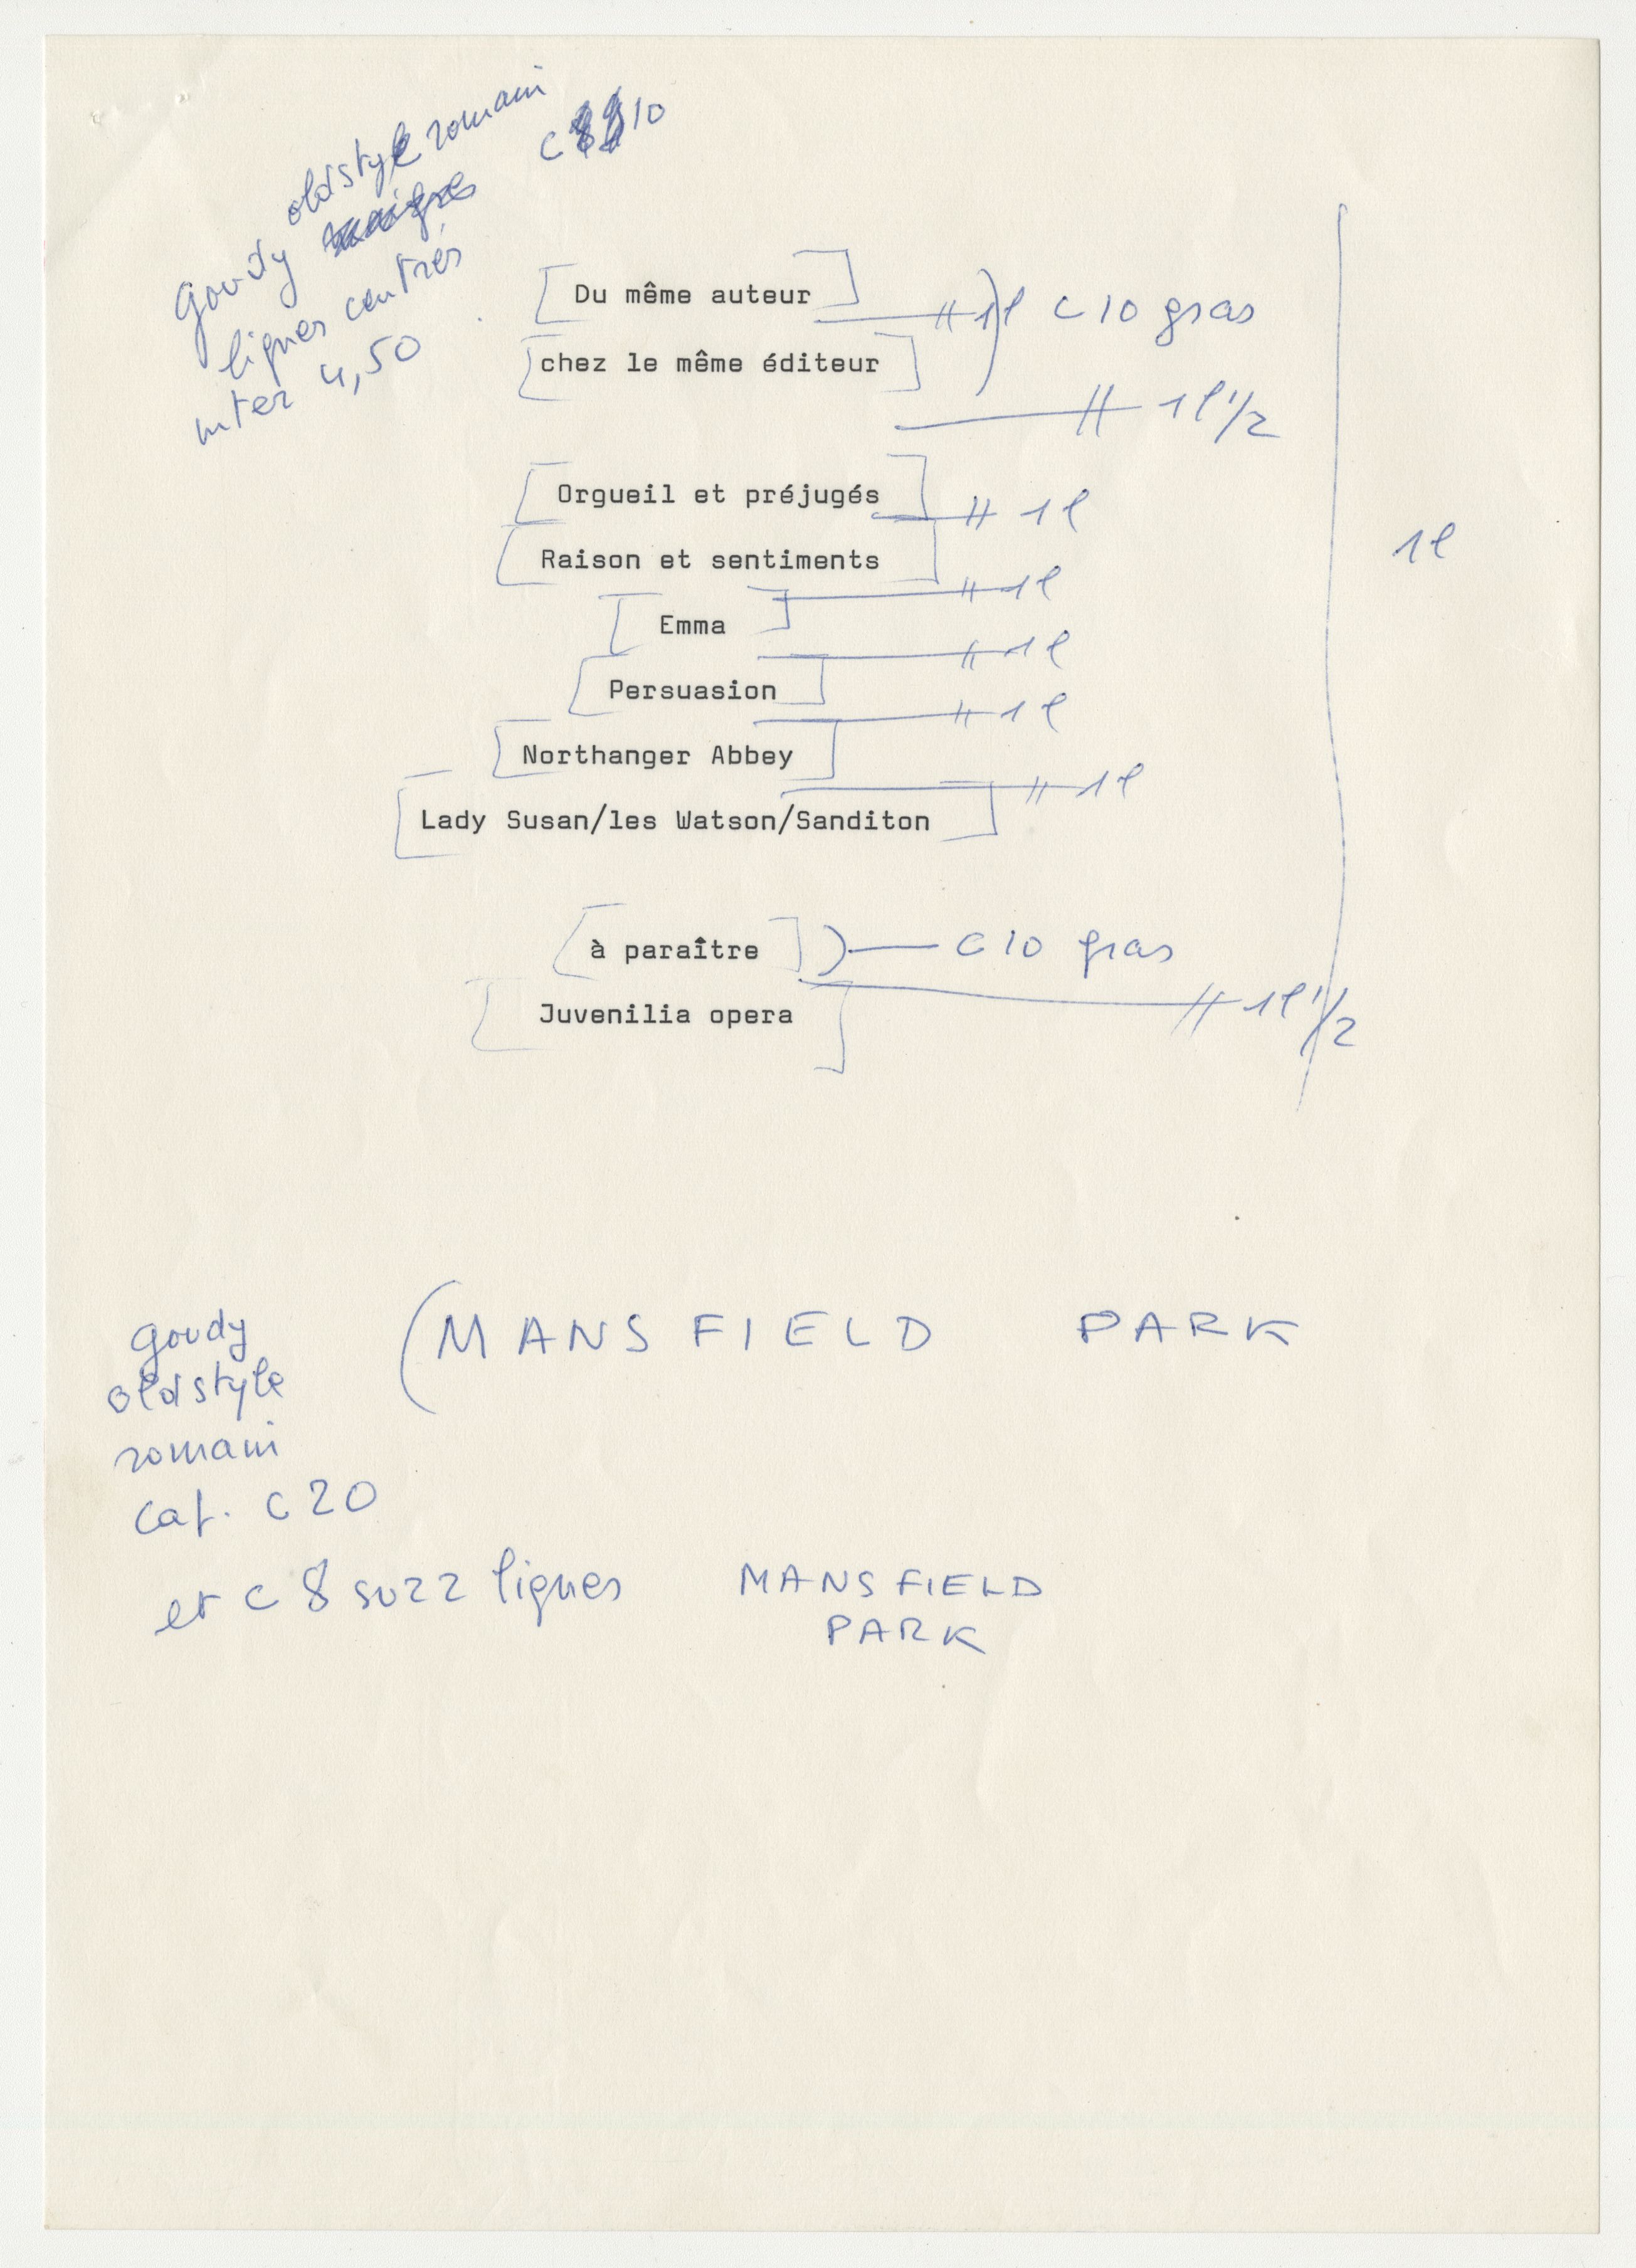 oldstyle romain
c 10
goudy
lignes centrés
inter 4,50
Du même auteur
# 1l c 10 gras
chez le même éditeur
# 1l 1/2
Orgueil et préjugés
# 1l
Raison et sentiments
1l
# 1l
Emma
# 1l
Persuasion
# 1l
Northanger Abbey
# 1l
Lady Susan/les Watson/Sanditon
à paraître
c 10 gras
# 1l 1/2
Juvenilia opera
goudy
oldstyle
romain
cap. c 20
MANSFIELD PARK
et c 8 sur 2 lignes
MANSFIELD
PARK